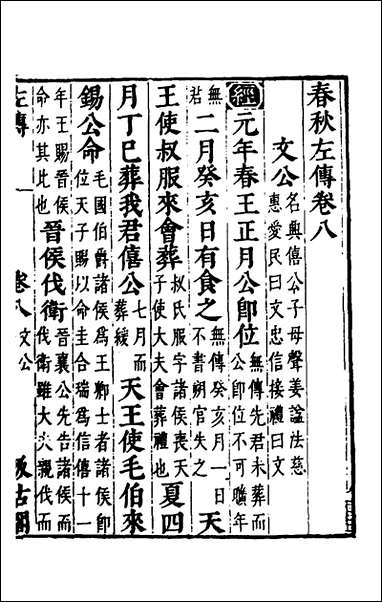 春秋左傳卷八
文公 名興僖公子母聲姜諡法慈
惠愛民曰文忠信接禮曰文
經 元年春王正月公即位 無傳先君未葬而
公即位不可曠年
無君 二月癸亥日有食之 無傳癸亥月一日
不書朔官失之 天
王使叔服來會葬 叔氏服字諸侯喪天
子使大夫會葬禮也 夏四
月丁巳葬我君僖公 七月而
葬緩 天王使毛伯來
錫公命 毛國伯爵諸侯爲王卿士者諸侯即
位天子賜以命圭合瑞爲信僖十一
年王賜晉侯
命亦其比也 晉侯伐衛 晉襄公先告諸侯而
伐衛雖大夫親伐而
左傳
卷八 文公
汲古閣